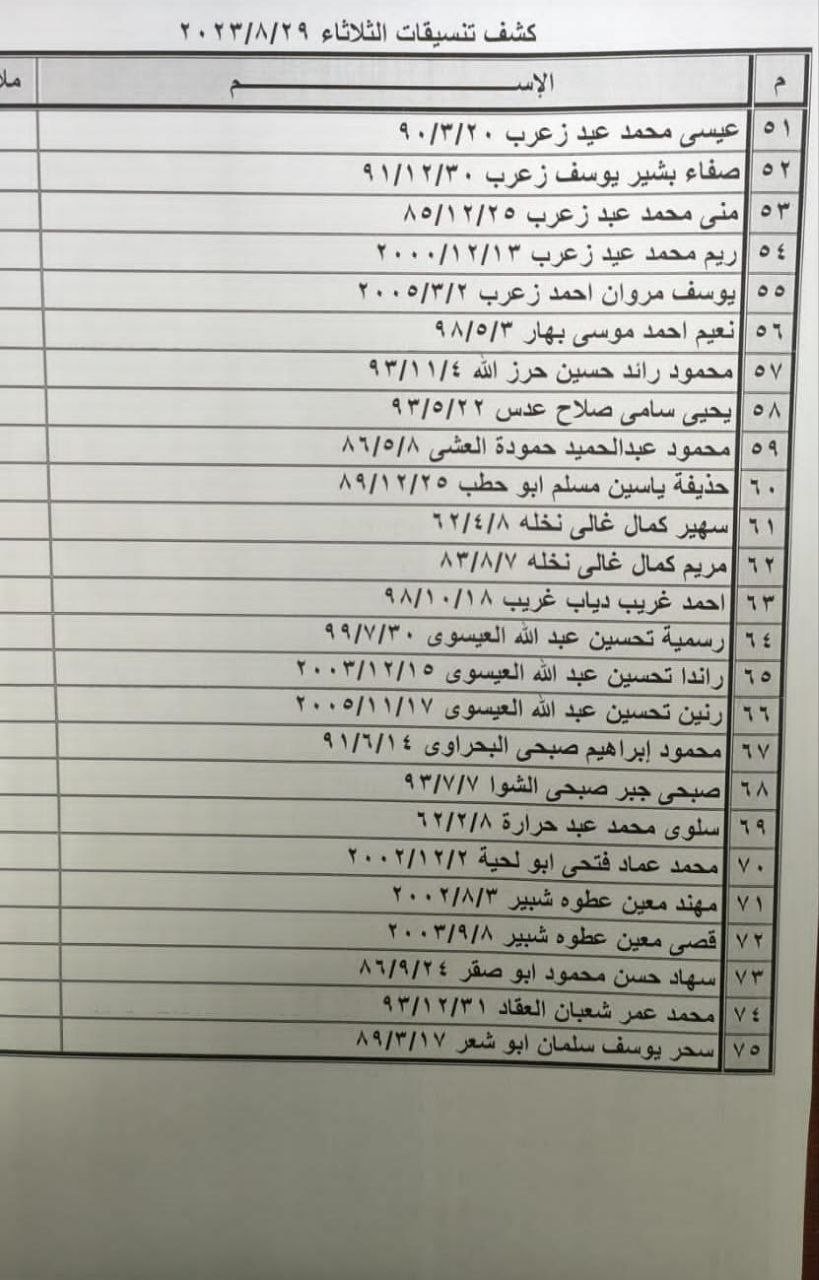 كشف تنسيقات الثلاثاء ٢٠٢٣/٨/٢٩
م الإســـــــــم
٥١ عيسى محمد عيد زعرب ٩٠/٣/٢٠
٥٢ صفاء بشير يوسف زعرب ٩١/١٢/٣٠
٥٣ منى محمد عبد زعرب ٨٥/١٢/٢٥
٥٤ ريم محمد عيد زعرب ٢٠٠٠/١٢/١٣
٥٥ يوسف مروان احمد زعرب ٢٠٠٥/٣/٢
٥٦ نعيم احمد موسى بهار ٩٨/٥/٣
٥٧ محمود رائد حسين حرز الله ٩٣/١١/٤
٥٨ يحيى سامى صلاح عدس ٩٣/٥/٢٢
٥٩ محمود عبدالحميد حمودة العشى ٨٦/٥/٨
٦٠ حذيفة ياسين مسلم ابو حطب ٨٩/١٢/٢٥
٦١ سهير كمال غالى نخله ٦٢/٤/٨
٦٢ مريم كمال غالى نخله ٨٣/٨/٧
٦٣ احمد غريب دياب غريب ٩٨/١٠/١٨
٦٤ رسمية تحسين عبد الله العيسوى ٩٩/٧/٣٠
٦٥ راندا تحسين عبد الله العيسوى ٢٠٠٣/١٢/١٥
٦٦ رنين تحسين عبد الله العيسوى ٢٠٠٥/١١/١٧
٦٧ محمود إبراهيم صبحى البحراوى ٩١/٦/١٤
٦٨ صبحى جبر صبحى الشوا ٩٣/٧/٧
٦٩ سلوى محمد عبد حرارة ٦٢/٢/٨
٧٠ محمد عماد فتحى ابو لحية ٢٠٠٢/١٢/٢
٧١ مهند معين عطوه شبير ٢٠٠٢/٨/٣
٧٢ قصى معين عطوه شبير ٢٠٠٣/٩/٨
٧٣ سهاد حسن محمود ابو صقر ٨٦/٩/٢٤
٧٤ محمد عمر شعبان العقاد ٩٣/١٢/٣١
٧٥ سحر يوسف سلمان ابو شعر ٨٩/٣/١٧